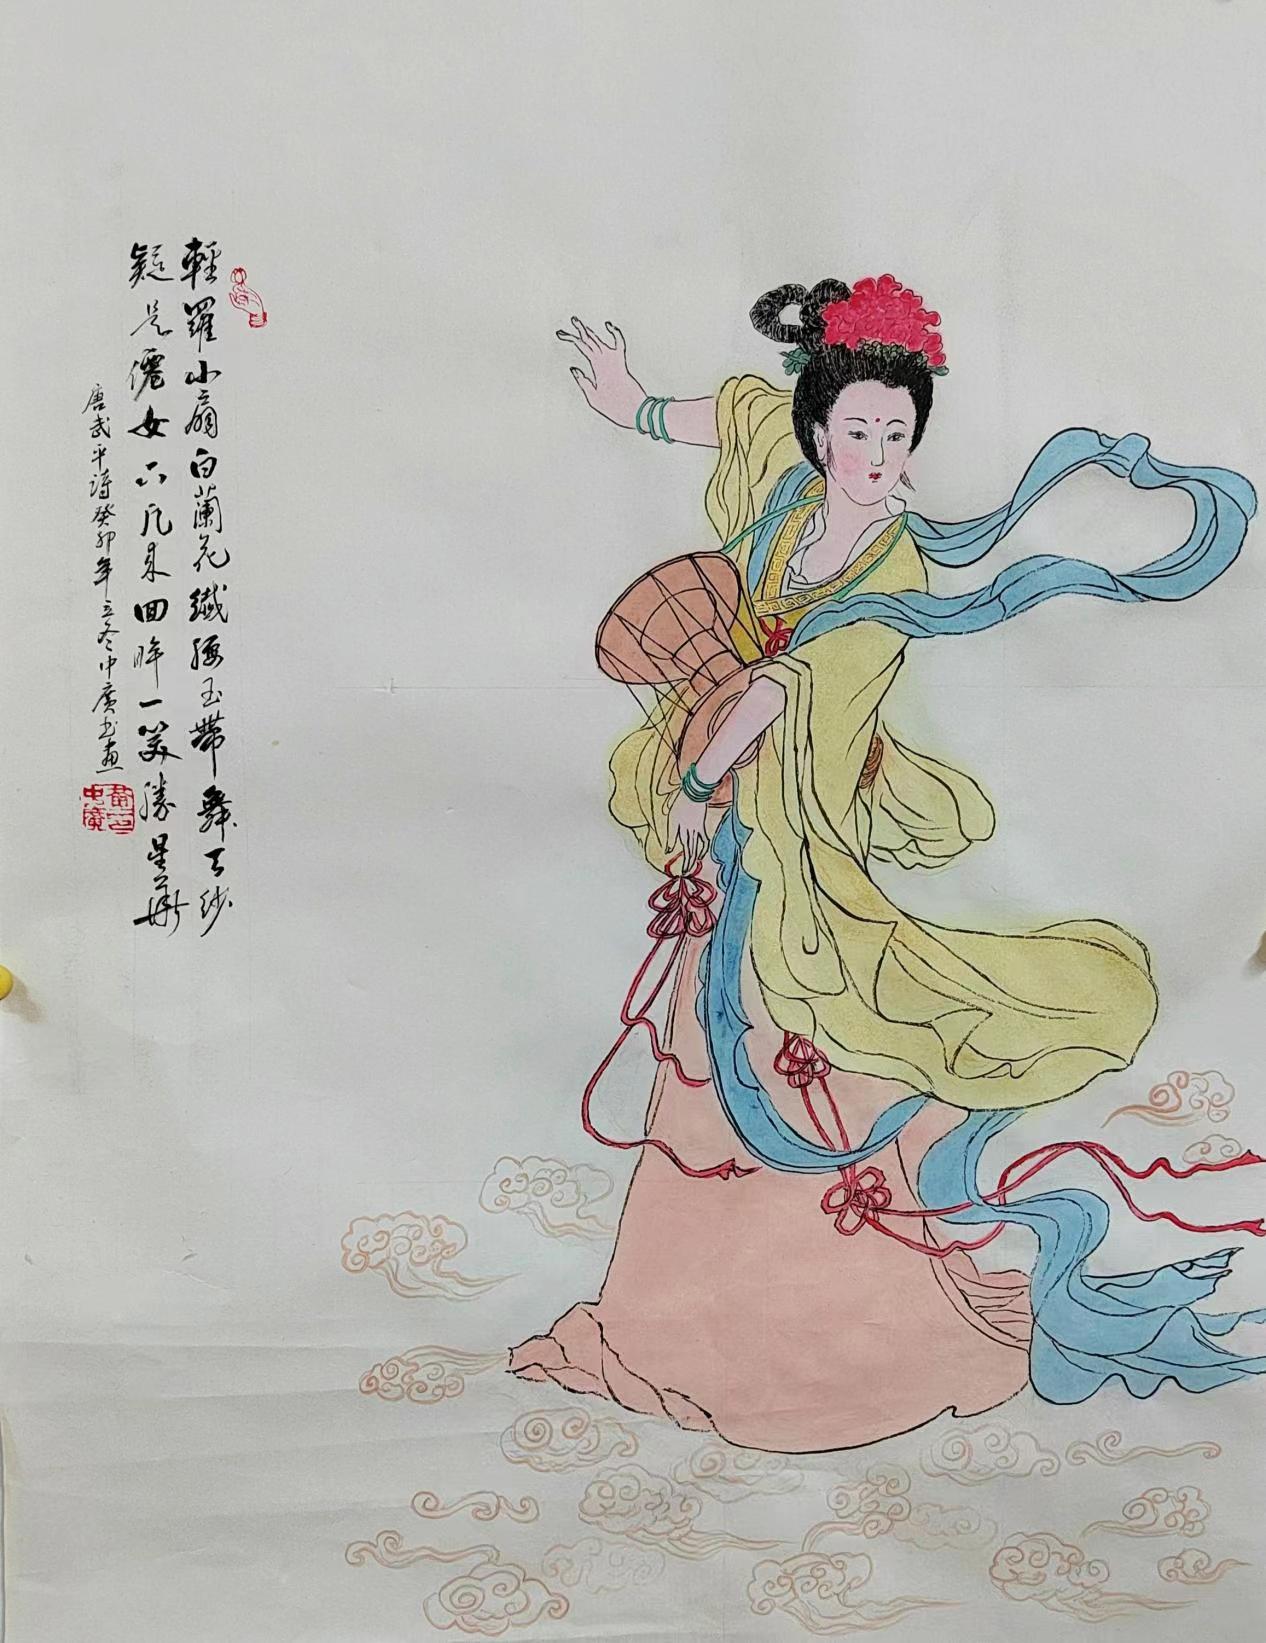 輕羅小扇白蘭花纖腰玉帶舞天紗
疑是僊女下凡来回眸一笑勝星華
唐武平诗癸卯年立冬中廣书画